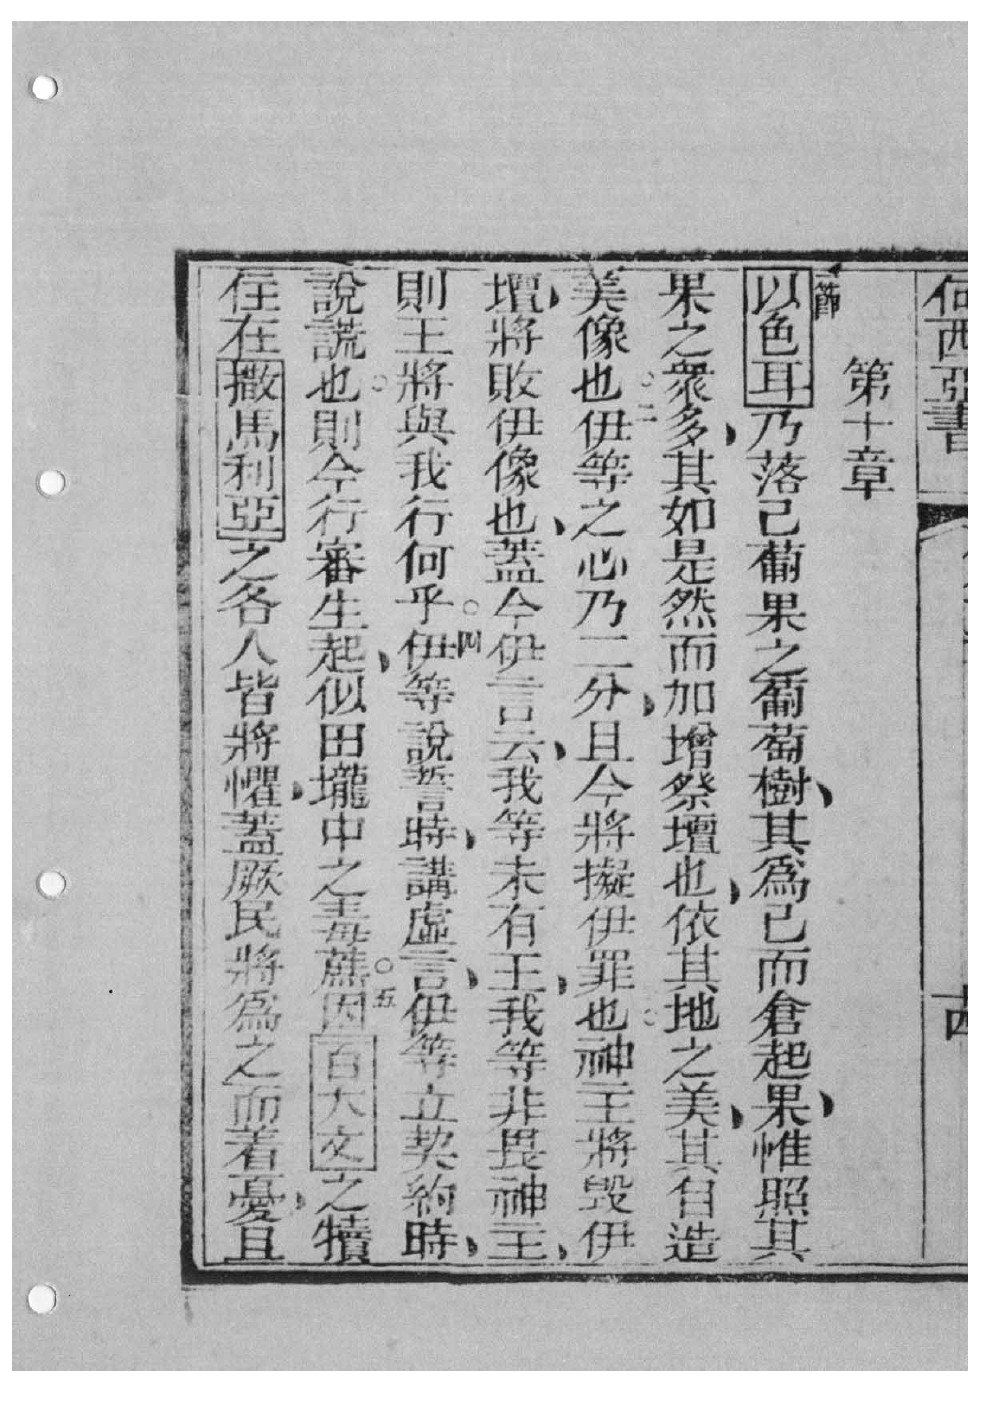 何西亞書
第十章
一節以色耳乃落己葡果之葡萄樹、其爲己而倉起果、惟照其
果之衆多、其如是然而加增祭壇也、依其地之美、其自造
美像也○二伊等之心乃二分、且今將擬伊罪也○神主將毀伊
壇、將敗伊像也、蓋今伊言云、我等未有王、我等非畏神主、
則王將與我行何乎○四伊等說誓時、講虛言、伊等立契約時、
說謊也○則今行審生起、似田壠中之毒蔍○五因百大文之犢
住在撒馬利亞之各人皆將懼、蓋厥民將爲之而着憂、且